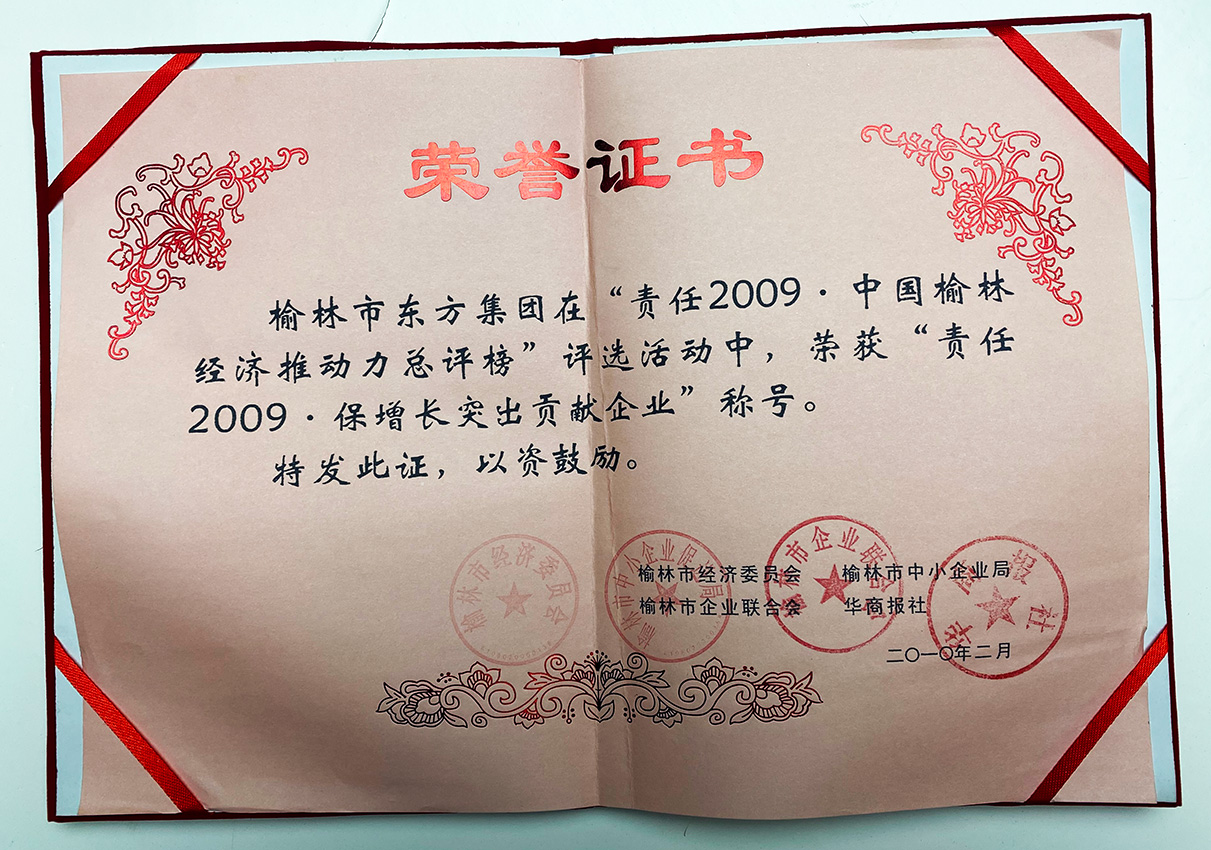 荣誉证书
榆林市东方集团在“责任2009·中国榆林
经济推动力总评榜”评选活动中，荣获“责任
2009·保增长突出贡献企业”称号。
特发此证，以资鼓励。
榆林市经济委员会 榆林市中小企业局
榆林市企业联合会 华商报社
二〇一〇年二月
榆林市经济委员会
榆林市中小企业促进局
榆林市企业联合会
华商报社